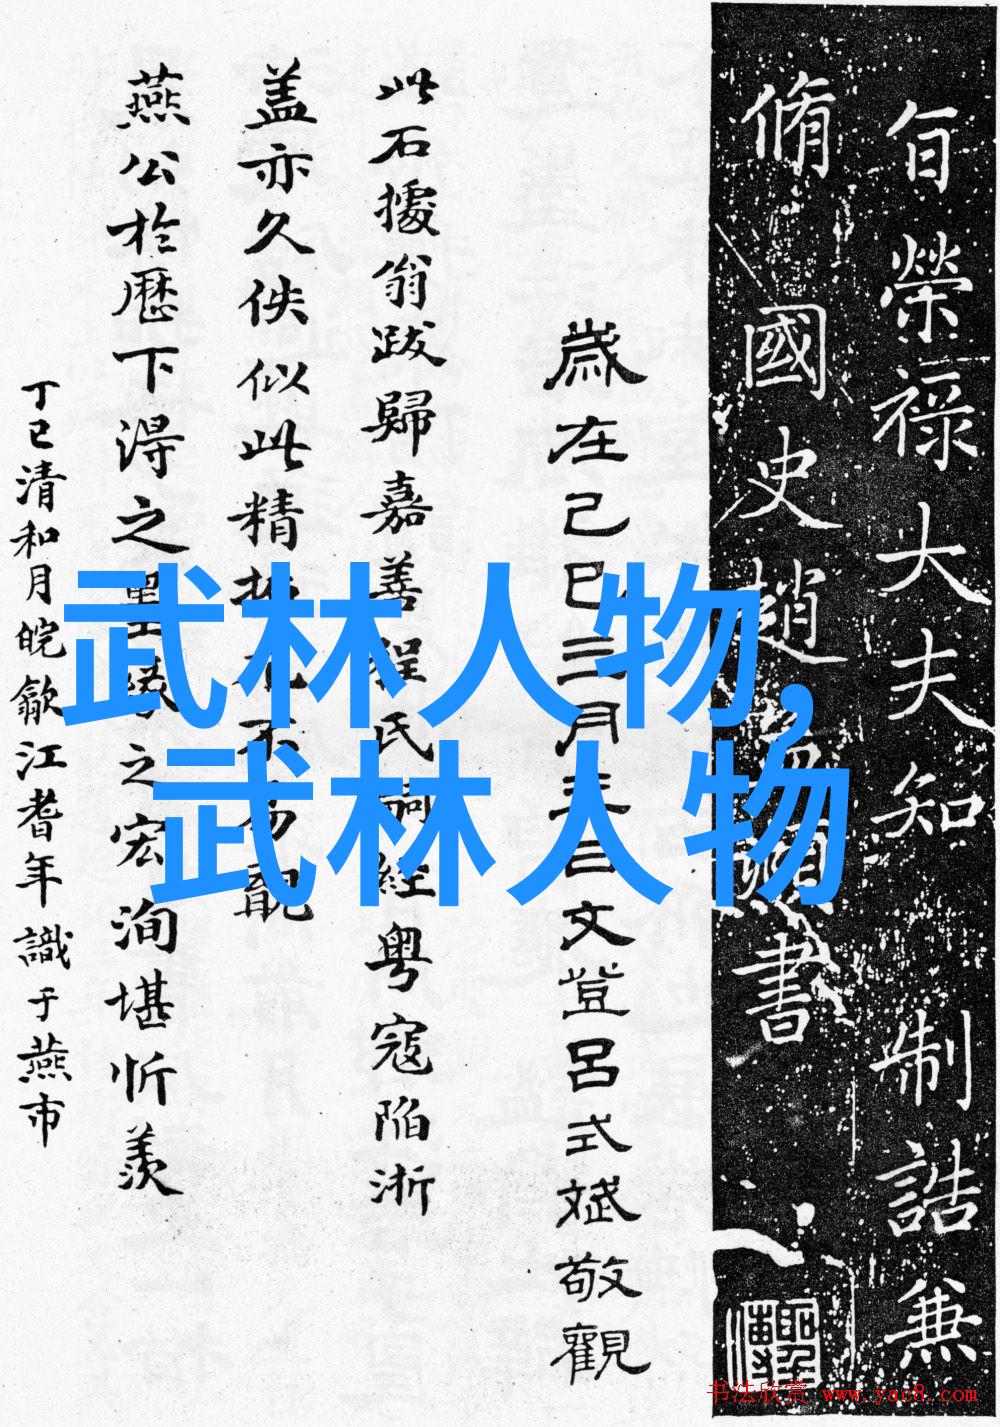 旨榮祿大夫知制誥兼
脩國史趙書
歲在己巳三月三日文登呂式斌敬觀
此石據翁跋歸嘉善程氏嗣經粵寇陷浙
蓋亦久佚似此精拓尤不易覯
燕公於歷下得之墨緣之宏洵堪忻羨
丁巳清和月皖歙江耆年識于燕市
武林人物,
武林人物
书法欣赏 www.yac8.com